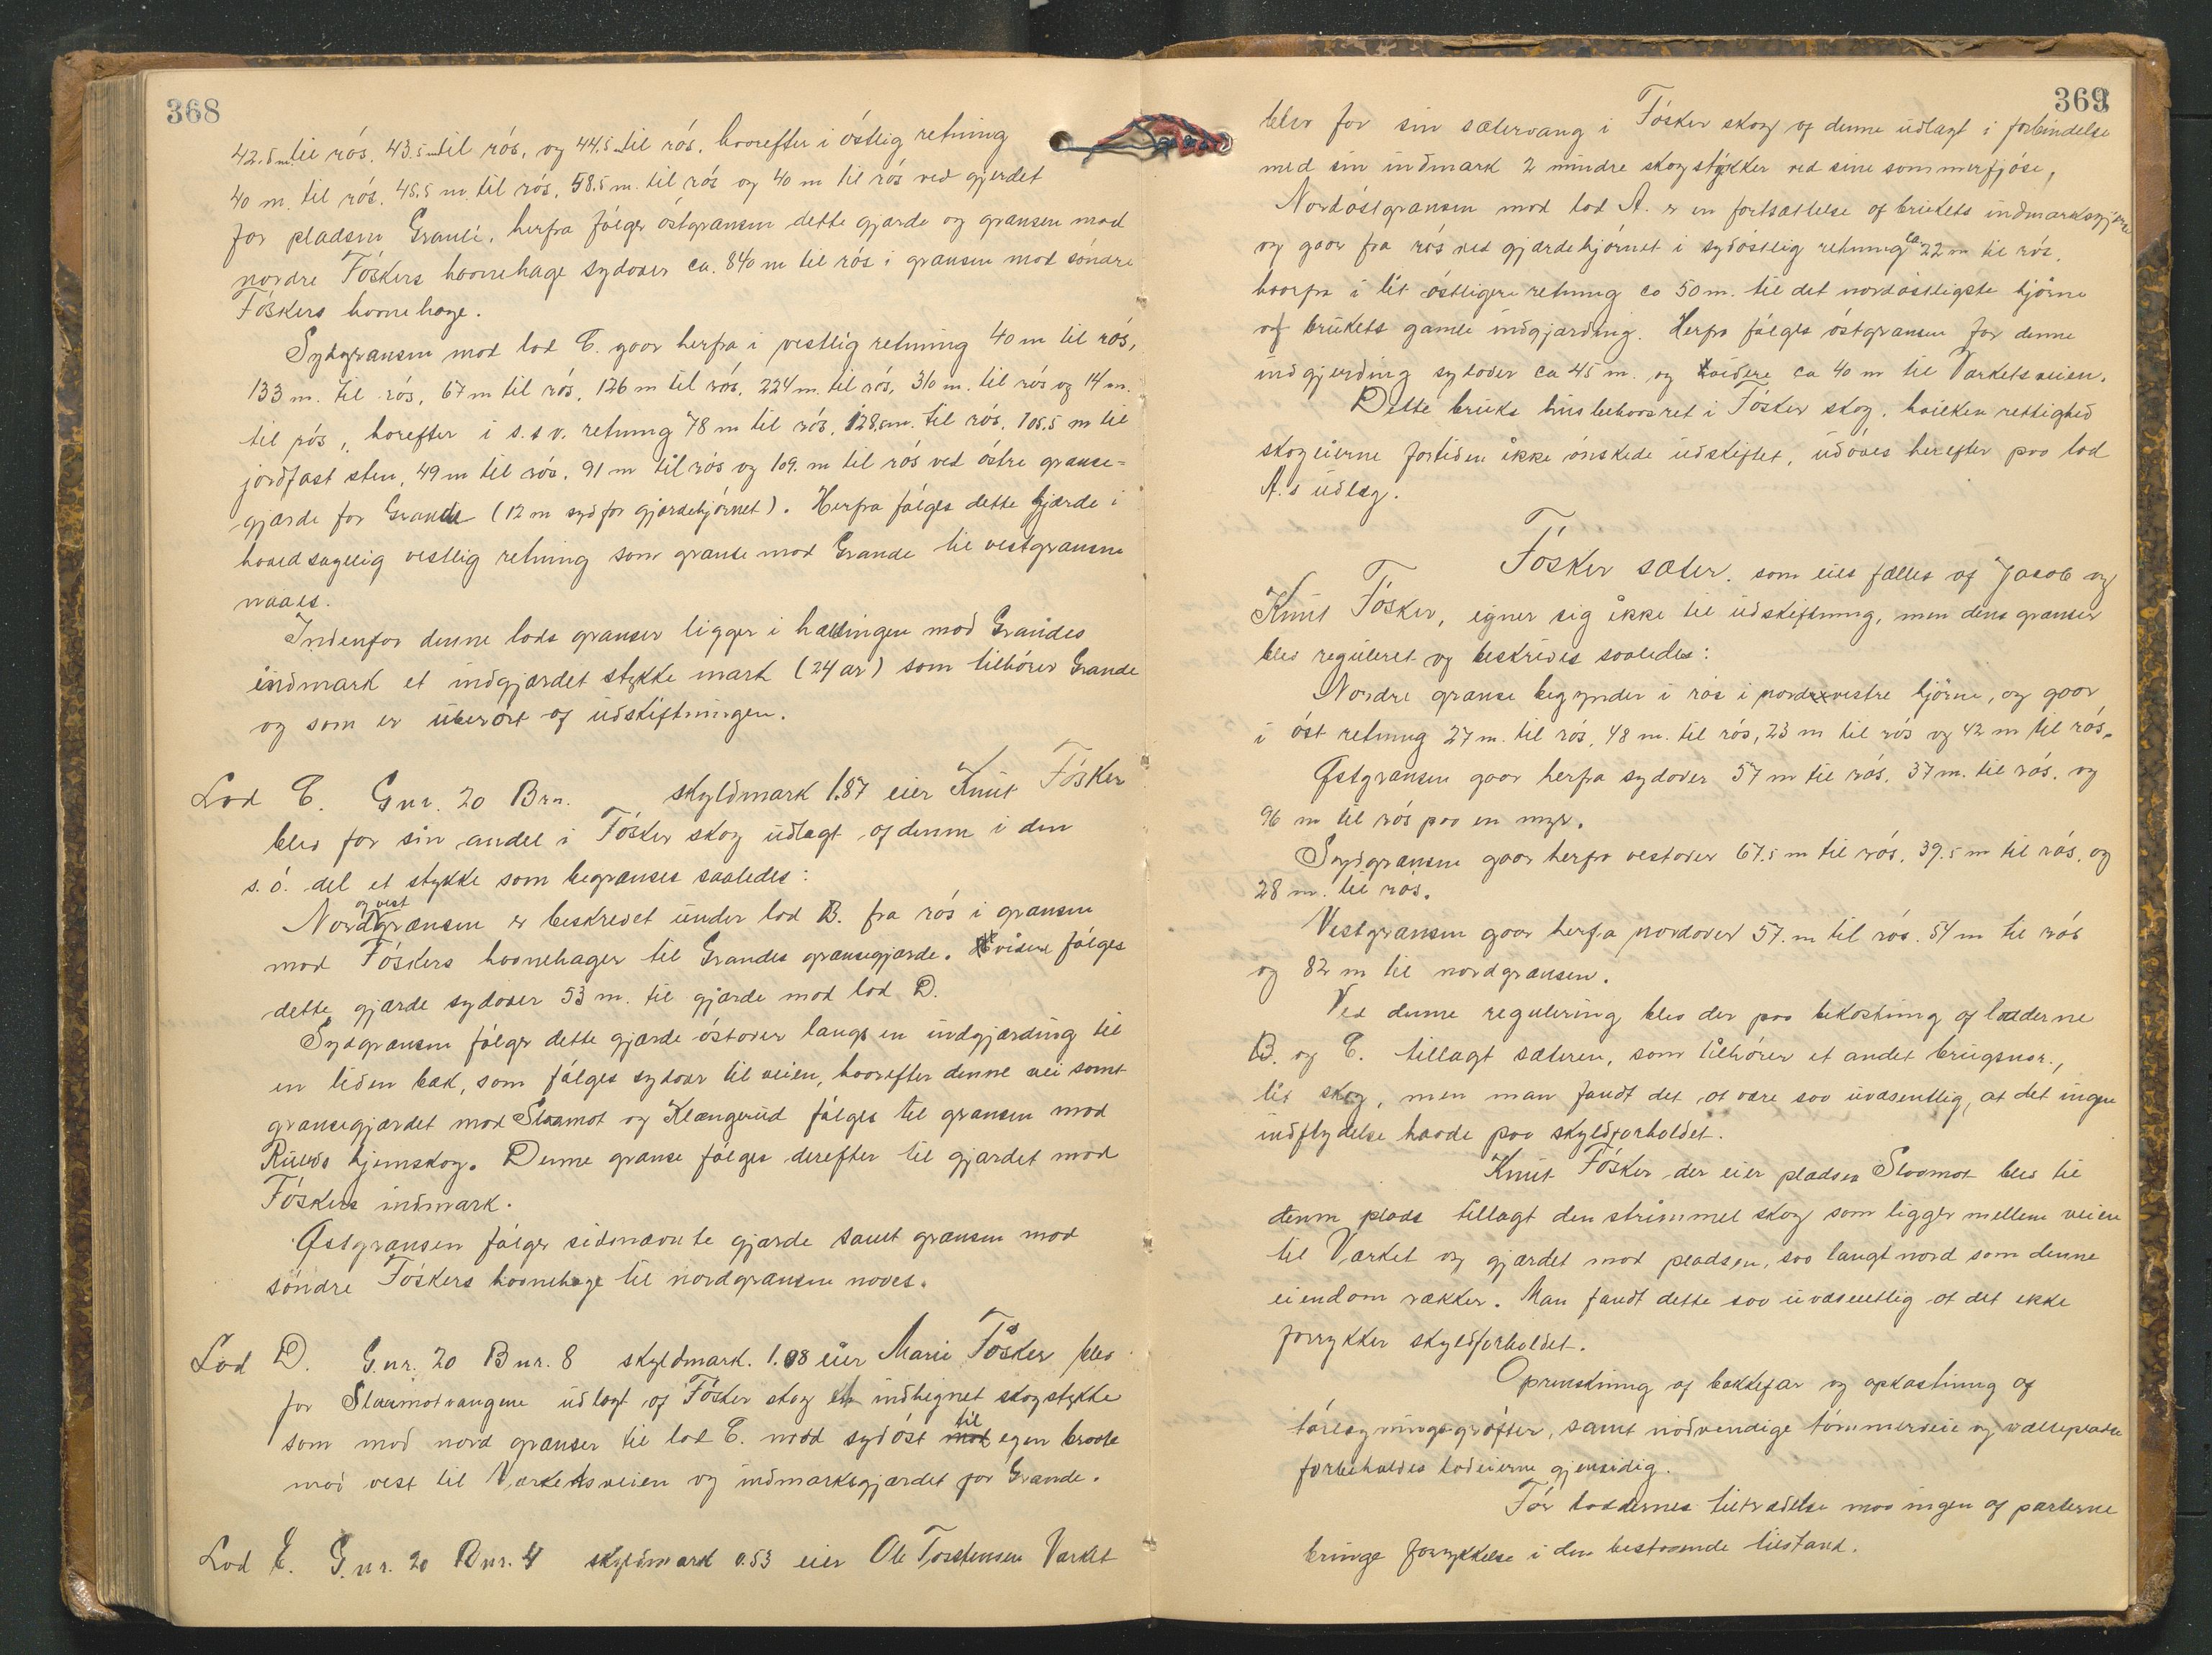 368
42.5 m til rös, 43.5 m til rös, og 44.5 m til rös, hvorefter i östlig retning
40 m. til rös. 45.5 m til rös, 58.5 m. til rös og 40 m til rös ved gjerdet
for pladsen Granli, herfra fölger östgrænsen dette gjærde og grænsen mod
nordre Föskers havnehage sydover ca. 840 m til rös i grænsen mod söndre
Föskers havnehage.
Sydgrænsen mod lod C. gaar herfra i vestlig retning 40 m til rös,
133 m. til rös, 67 m til rös, 126 m til rös, 224 m. til rös, 310 m. til rös og 14 m.
til rös, horefter i s.s.v. retning 78 m til rös, 128.5 m. til rös, 105.5 m til
jordfast sten, 49 m til rös, 91 m til rös og 109. m til rös ved östre grænse=
gjærde for Grande (12 m syd for gjærdehjörnet). Herfra fölges dette gjærde i
hovedsagelig vestlig retning som grænse mod Grande til vestgrænsen
naaes.
Indenfor denne lods grænser ligger i hældingen mod Grandes
indmark et indgjærdet stykke mark (24 ar) som tilhörer Grande
og som er uberört af udskiftningen.
Lod C. Gnr. 20 Brn. skyldmark 1.87 eier Knut Fösker
blev for sin andel i Fösker skog udlagt af denne i den
s.ö. del et stykke som begrænses saaledes:
og vest
Nordgrænsen er beskrevet under lod B. fra rös i grænsen
mod Föskers havnehager til Grandes grænsegjærde. Videre fölges
dette gjærde sydover 53 m. til gjærde mod lod D.
Sydgrænsen fölger dette gjærde östover langs en indgjærding til
en liden bæk, som fölges sydover til veien, hvorefter denne vei samt
grænsegjærdet mod Slaamot og Klængerud fölges til grænsen mod
Ruuds hjemskog. Denne grænse fölges derefter til gjærdet mod
Föskers indmark.
Östgrænsen fölger sidsnævnte gjærde samt grænsen mod
söndre Föskers havnehage til nordgrænsen naaes.
Lod D. G.nr. 20 Bnr. 8 skyldmark. 1.08 eier Marie Fösker blev
for Slaamotvangene udlagt af Fösker skog et indhegnet skogstykke
som mod nord grænser til lod C. mod sydöst til egen braate
mod vest til Værketsveien og indmarksgjærdet for Grande.
Lod E. G.nr. 20 Bnr. 4 skyldmark 0.53 eier Ole Torstensen Værket
369
blev for sin sætervang i Fösker skog af denne udlagt i forbindelse
med sin indmark 2 mindre skogstykker ved sine sommerfjöse,
Nordöstgrænsen mod lod A. er en fortsættelse af brukets indmarksgjære
og gaar fra rös ved gjærdehjörnet i sydöstlig retning ca 22 m til rös,
hvorfra i lit östligere retning ca 50 m. til det nordöstligste hjörne
af brukets gamle indgjærding. Herfra fölges östgrænsen for denne
indgjerding sydover ca 45 m. og videre ca 40 m til Værketsveien.
Dette bruks husbehovsret i Fösker skog, hvilken rettighed
skogeierne fortiden ikke önskede udskiftet, udöves herefter paa lod
A.s udlæg.
Fösker sæter. som eies fælles af Jacob og
Knut Fösker, egner sig ikke til udskiftning, men dens grænser
blev reguleret og beskrives saaledes:
Nordre grænse begynder i rös i nordvestre hjörne, og gaar
i öst retning 27 m. til rös, 48 m. til rös, 23 m til rös og 42 m til rös.
Östgrænsen gaar herfra sydover 57 m til rös, 37 m. til rös, og
96 m til rös paa en myr.
Sydgrænsen gaar herfra vestover 67.5 m til rös, 39.5 m til rös, og
28 m. til rös.
Vestgrænsen gaar herfra nordover 57. m til rös. 54 m til rös
og 82 m til nordgrænsen.
Ved denne regulering blev der paa bekostning af lodderne
B. og C. tillagt sæteren, som tilhörer et andet brugsnr.,
lit skog, men man fandt det at være saa uvæsentlig, at det ingen
indflydelse havde paa skyldforholdet.
Knut Fösker der eier pladsen Slaamot blev til
denne plads tillagt den strimmel skog som ligger mellem veien
til Værket og gjærdet mod pladsen, saa langt nord som denne
eiendom rækker. Man fandt dette saa uvæsentlig at det ikke
forrykker skyldforholdet.
Oprenskning af bækkefar og opkastning af
törlægningsgröfter, samt nödvendige tömmerveie og væltepladse
forbeholdes lodeierne gjensidig.
För loddernes tiltrædelse maa ingen af parterne
bringe forrykkelse i den bestaaende tilstand.